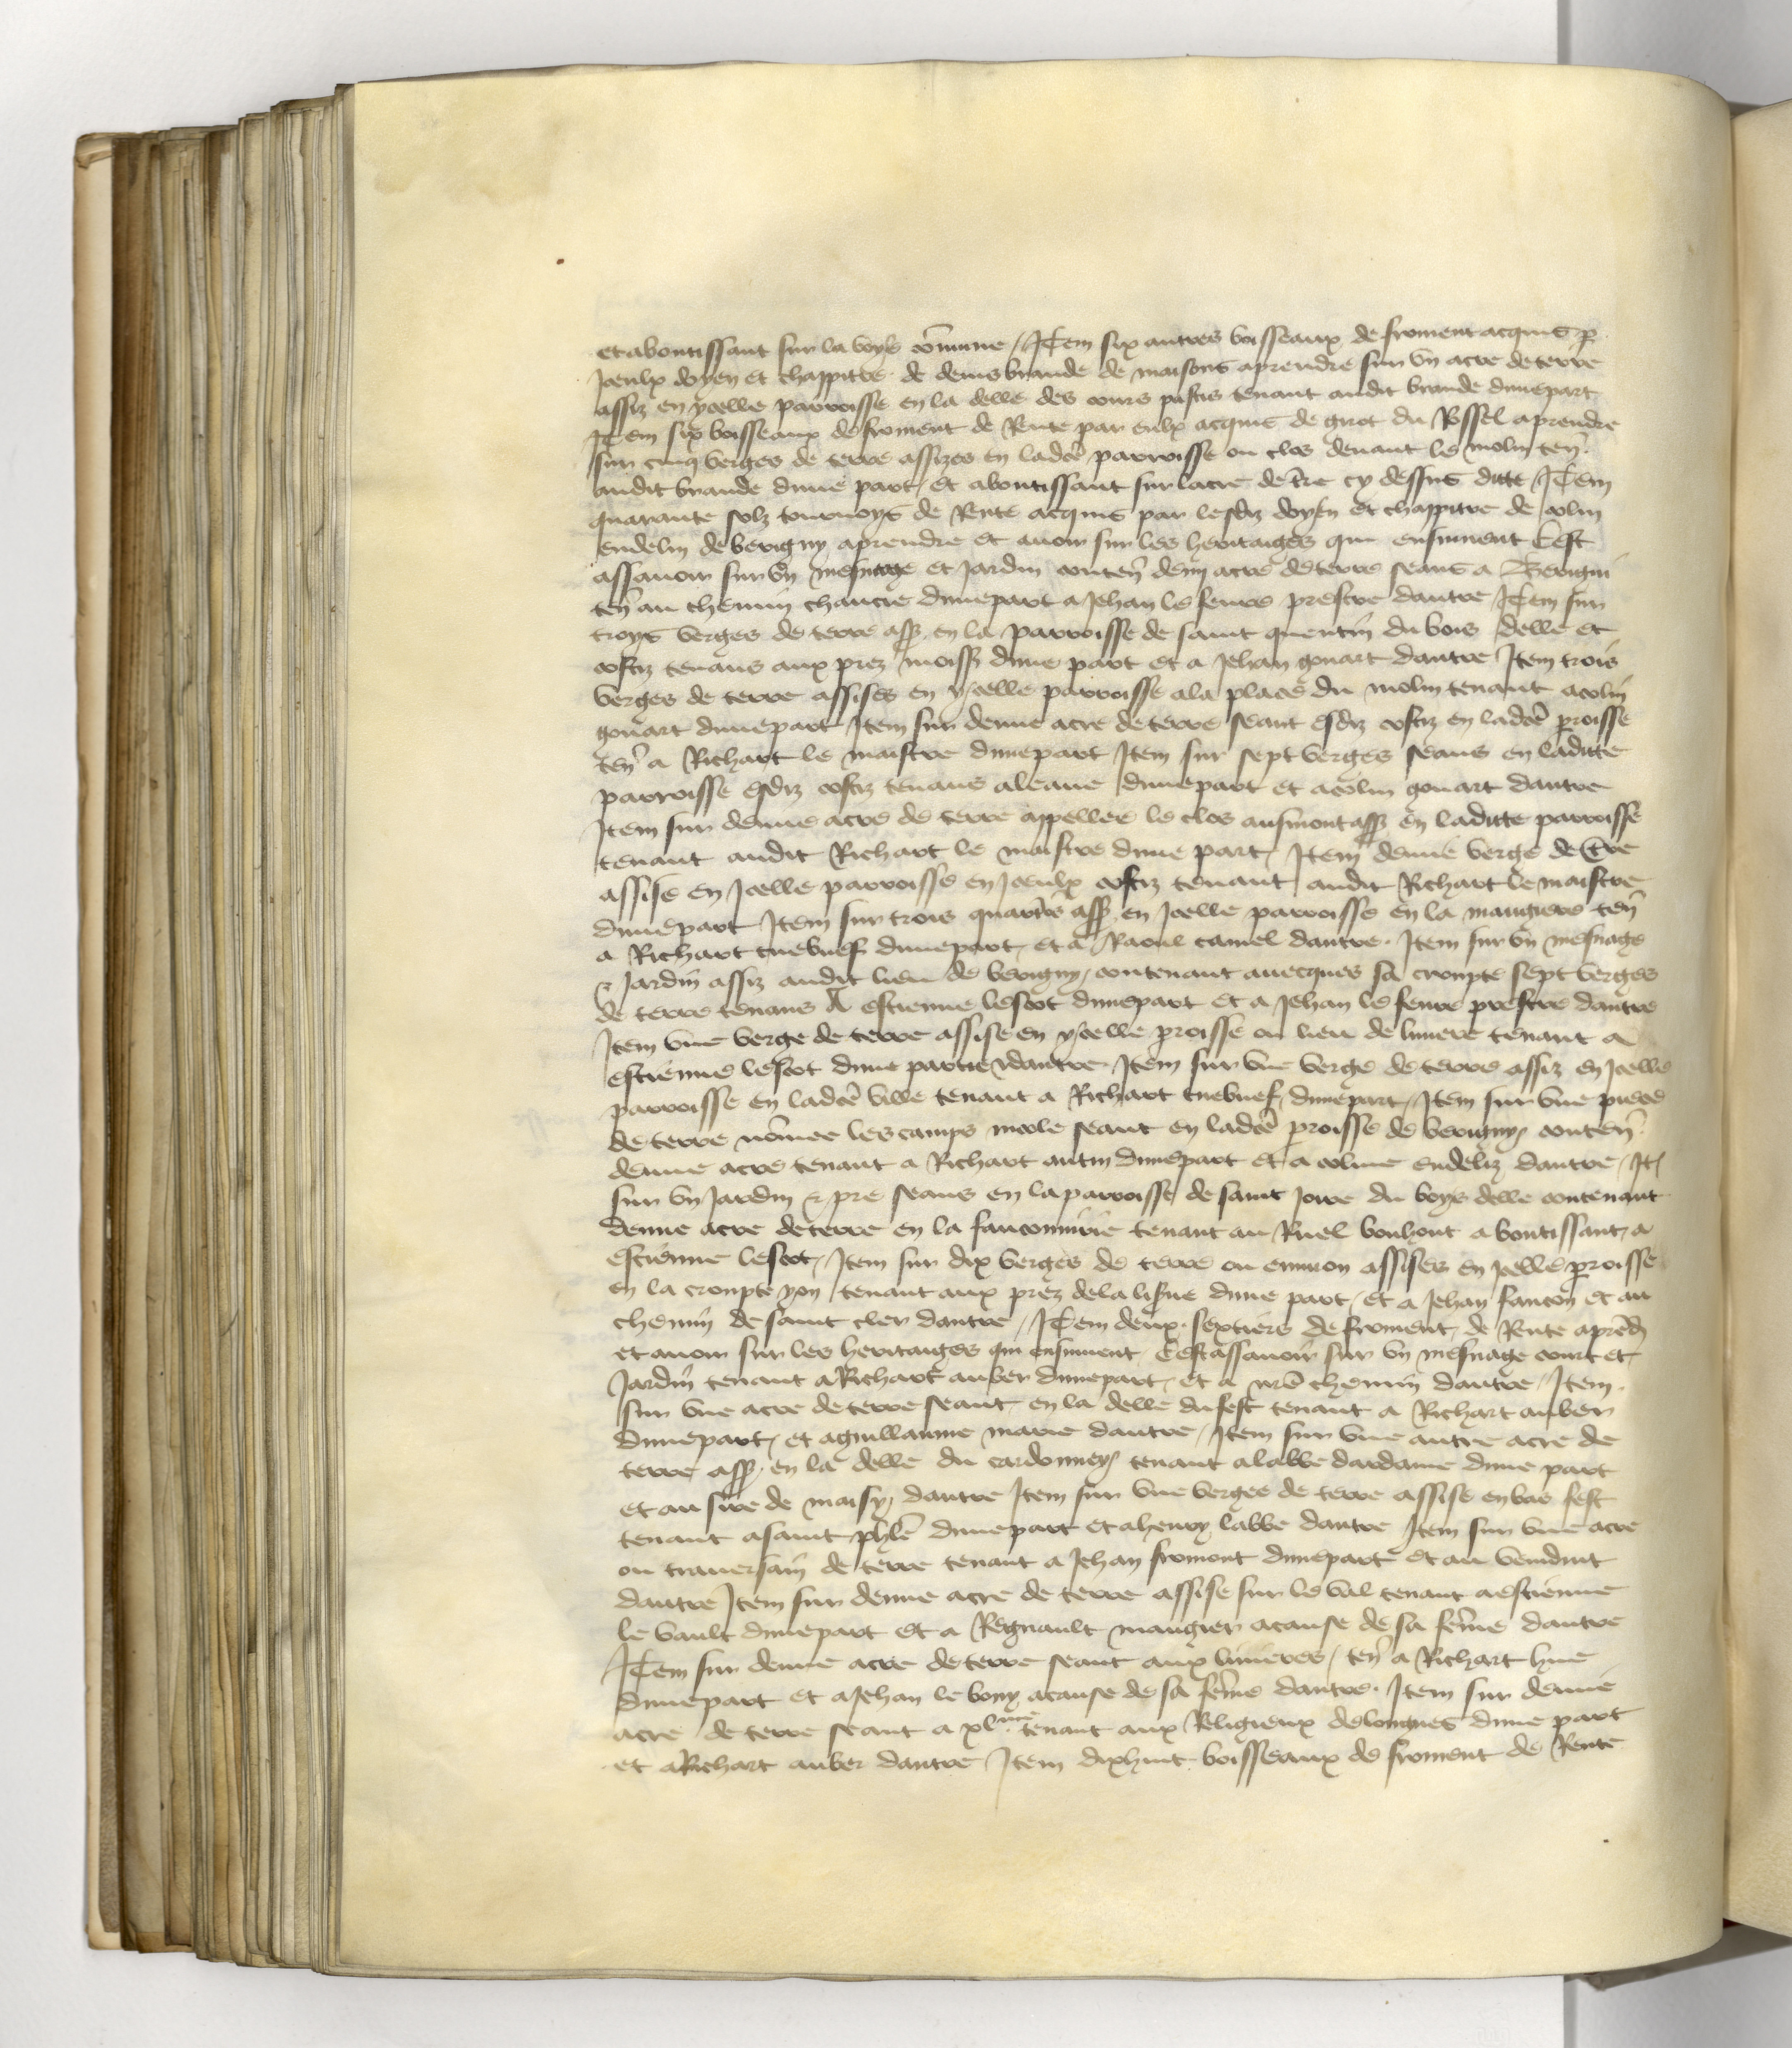 et aboutissant sur la voye cõmune / Item six autres boisseaux de froment acquis p̄
Iceulx doyen et chappitre de denis brande de maisons aprendre sur vn acre de terre
assiz en ycelle parroisse en la delle des cours tenant audit brande dunepart
Item six boisseaux de froment de Rente par eulx acquis de guiot du Rossel aprendre
sur cinq verges de terre assizes en ladcẽ parroisse ou clos deuant le molin teñ
audit brande dune part / Et aboutissant sur lacre de tr̃e cy dessus ditte / Item
quarante solz tournoys de Rente acquis par lesdiz doyen et chappitre de colin
endelin de berigny aprendre et auoir sur les heritaiges qui ensuiuent Cest
assauoir sur vn mesnage et Jardin conteñ demy acre de terre seans a Berigni
teñ au chemin chaucie dunepart a Jehan le feure prestre dautre / Item sur
troys verges de terre ass̃ en la parroisse de saint quentin du bois delle et
costiz tenans aux prez moiss̃ dune part et a Jehan gouart dautre Item trois
verges de terre assises en ycelle parroisse ala place du molin tenant acolin
gouart dunepart Item sur demie acre de terre seant esdiz costiz en ladcẽ p̄roisse
teñ a Richart le maistre dunepart Item sur sept verges seans en laditte
parroisse esdiz costiz tenans aleaue dunepart et acolin gouart dautre
Item sur demie acre de terre appellee le clos ausmont ass̃ en laditte parroisse
tenant audit Richart le maistre dune part / Item demie verge de tr̃e
assise en Icelle parroisse en Iceulx costiz tenant audit Richart le maistre
dunepart Item sur trois quartr̃s ass̃ en Icelle parroisse en la maugiere teñ
a Richart tuebuef dunepart / et a Raoul camel dautre. Item sur vn mesnage
& Jardin assiz audit lieu de berigny / contenant auecques sa croupte sept verges
de terre tenans A estienne lescot dunepart et a Jehan le feure prestre dautre
Item vne verge de terre assise en ycelle p̄roisse ou lieu de liniere tenant a
estienne lescot dune part et dautre Item sur vne verge de terre assiz en Icelle
parroisse en ladcẽ ville tenant a Richart tuebuef / dunepart / Item sur vne piece
de terre nõmee les camps nicole seant en ladcẽ p̄roisse de berigny / conteñ
demie acre tenant a Richart autin dunepart et a coline endeliz dautre / It̃
sur vn Jardin & pre seans en la parroisse de saint Jorre du boys delle contenant
demie acre de terre en la fauconnirie tenant au Ruel bouhout aboutissant / a
estienne lescot / Item sur dix verges de terre ou enuiron assises en Icelle p̄roisse
en la croupte yon tenant aux prez dela lisne dune part / Et a Jehan faucon et au
chemin de saint cler dautre / Item deux sextiers de froment / de Rente aprẽdr̃
et auoir sur les heritaiges qui ensuiuent / Cest assauoir sur vn mesnage court et
Jardin tenant a Richart auber dunepart / et a vr̃e chemin dautre / Item
sur vne acre de terre seant en la delle du fest tenant a Richart auber
dunepart / et aguillaume marie dautre / Item sur vne autre acre de
terre ass̃ en la delle du cardonney / tenant alabbe dardaine dune part
et au sire de maisy / dautre Item sur vne vergee de terre assise en bas fest
tenant asaint phlẽ dunepart et ahenry labbe dautre Item sur vne acre
ou trauersain de terre tenant a Jehan fromont dunepart et au
dautre Item sur demie acre de terre assise sur le val tenant aestienne
le vault dunepart et a Regnault maugier acause de sa fẽme dautre
Item sur demie acre de terre seant aux linieres / teñ a Richart hue
dunepart et aJehan le bony acause de sa fẽme dautre. Item sur demie
acre de terre seant a xlme tenant aux Religieux delongues dune part
et aRichart auber dautre Item dixhuit boisseaux de froment de Rente